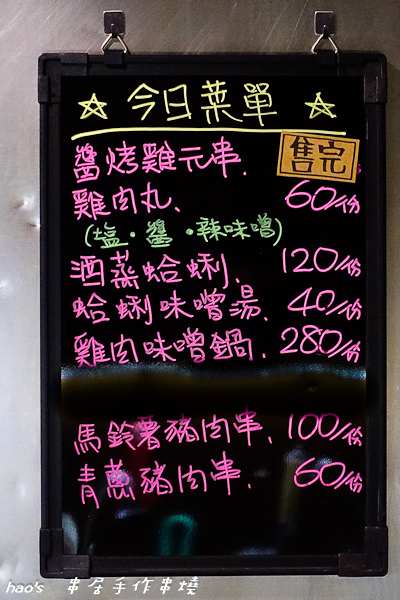 ☆ 今日菜單 ☆
醬烤雞元串. 售完
雞肉丸、 60/份
(塩・醬・辣味噌)
酒蒸蛤蜊. 120/份
蛤蜊味噌湯、 40/份
雞肉味噌鍋. 280/份
馬鈴薯豬肉串. 100/份
青蔥豬肉串. 60/份
hao's 串居手作串燒